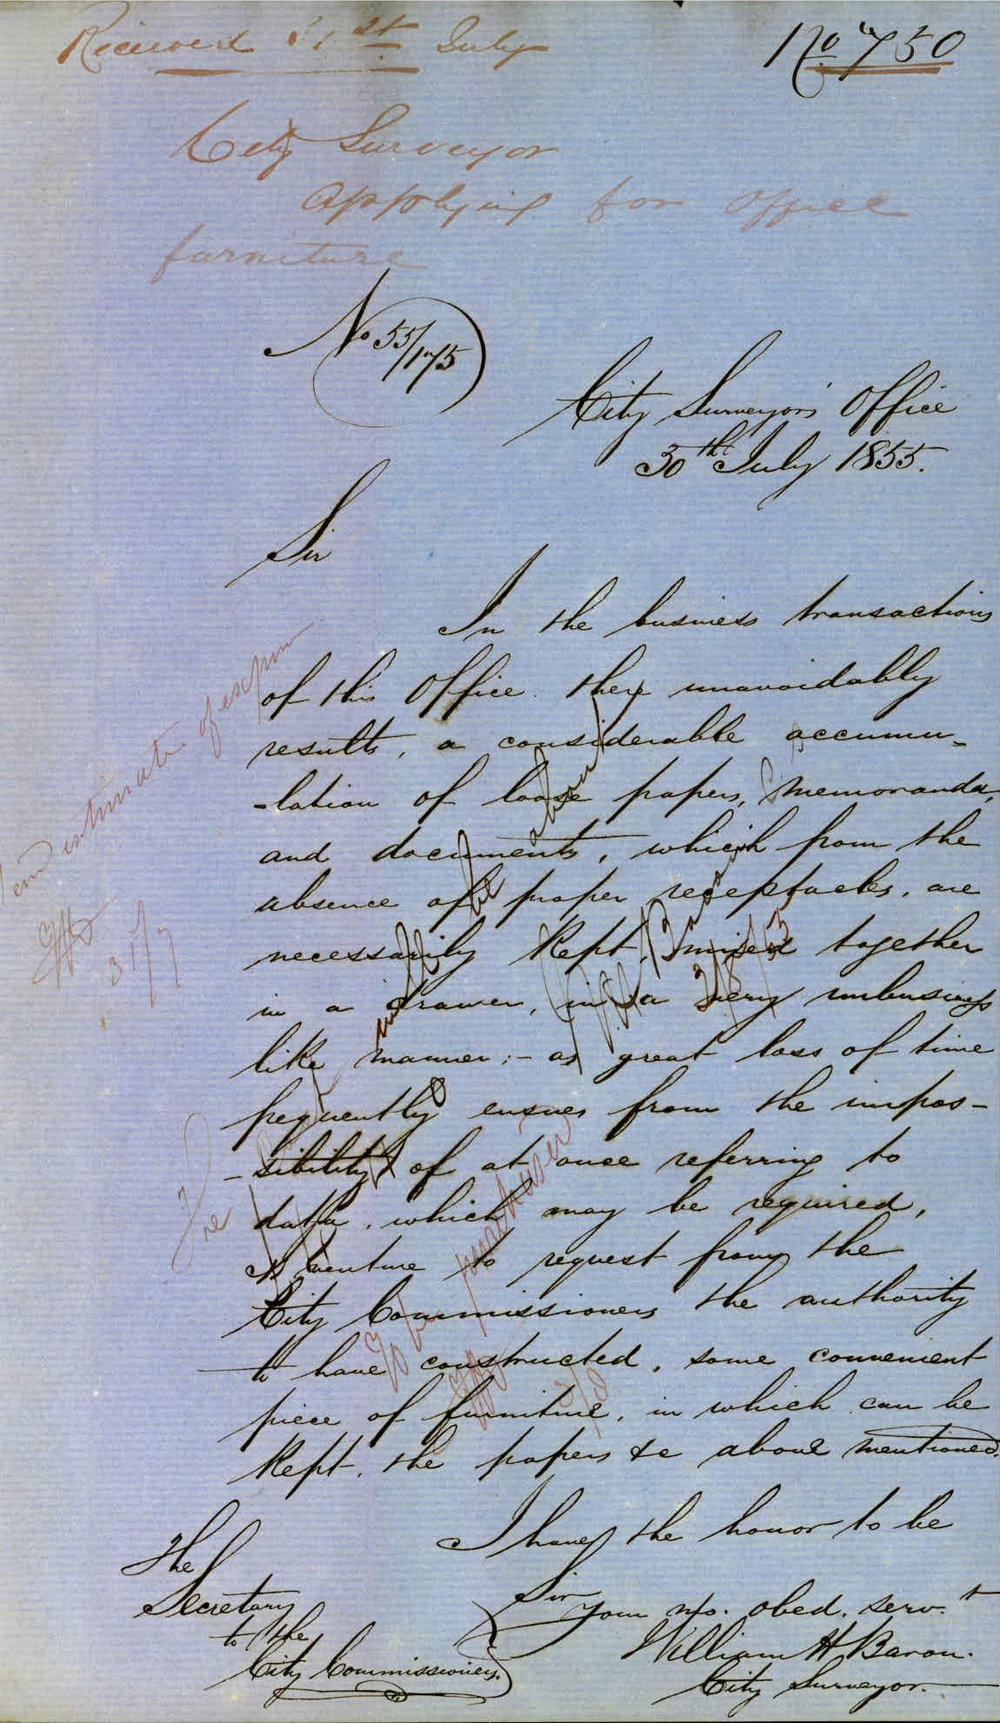 Received 31st July
No 750
City Surveyor
applying for office
furniture
No 55/175
City Surveyors' Office
30th July 1855.
Sir
In the business transactions
of this Office there unavoidably
results, a considerable accumu-
-lation of loose papers, memoranda,
and documents, which from the
absence of proper receptacles, are
necessarily kept, mixed together
in a drawer, in a very unbusiness
like manner;- as great loss of time
frequently ensues from the impos-
-sibility of at once referring to
data, which may be required,
I venture to request from the
City Commissioners the authority
to have constructed, some convenient
piece of furniture, in which can be
kept, the papers &c above mentioned.
I have the honor to be
Sir
Your mo. obed. servt
William H Baron.
City Surveyor.
The
Secretary
to the
City Commissioners.
estimate of expense
31/7
will be about
W H Baron
2/8/55
To be purchased